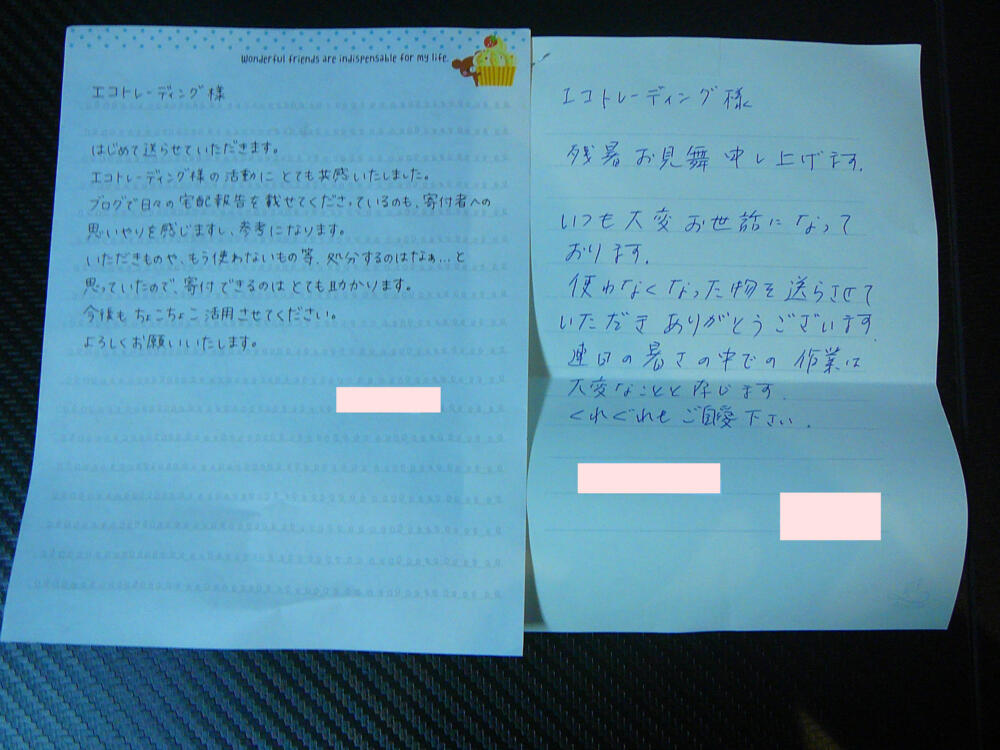 Wonderful friends are indispensable for my life.
エコトレーディング様
はじめて送らせていただきます。
エコトレーディング様の活動にとても共感いたしました。
ブログで日々の宅配報告を載せてくださっているのも、寄付者への
思いやりを感じますし、参考になります。
いただきものや、もう使わないもの等、処分するのはなぁ…と
思っていたので、寄付できるのはとても助かります。
今後もちょこちょこ活用させてください。
よろしくお願いいたします。
エコトレーディング様
残暑お見舞申し上げます。
いつも大変お世話になって
おります。
使わなくなった物を送らさせて
いただきありがとうございます。
連日の暑さの中での作業は
大変なことと存じます.
くれぐれもご自愛下さい.